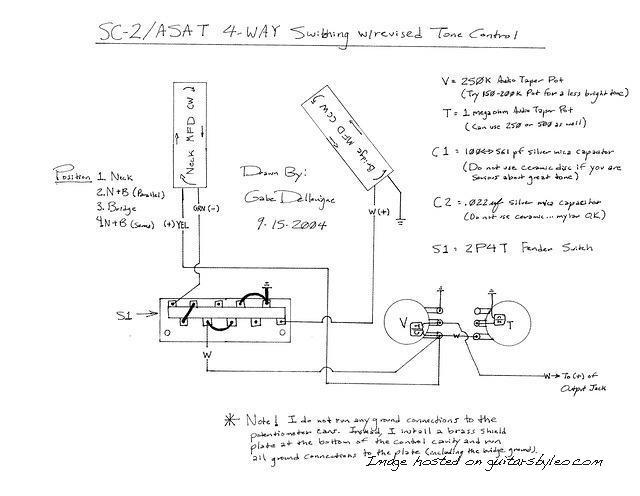 SC-2/ASAT 4-WAY Swithing w/revised Tone Control
V = 250K Audio Taper Pot
(Try 150-200K Pot for a less bright tone)
T = 1 megaohm Audio Taper Pot
(Can use 250 or 500 as well)
C1 = 100<->561 pf silver mica capacitor
(Do not use ceramic disc if you are
serious about great tone)
C2 = .022uf silver mica capacitor
(Do not use ceramic...mylar OK)
S1 = 2P4T Fender Switch
Neck MFD CW
Bridge MFD CCW
Position 1. Neck
2. N+B (Parallel)
3. Bridge
4. N+B (Series)
(+) YEL
GRN (-)
Drawn By:
Gabe Dellevigne
9-15-2004
W (+)
S1
W
V
W
T
W To (+) of
Output Jack
* Note! I do not run any ground connections to the
potentiometer cans. Instead, I install a brass shield
plate at the bottom of the control cavity and run
all ground connections to the plate (including the bridge ground).
Image hosted on guitarsbyleo.com